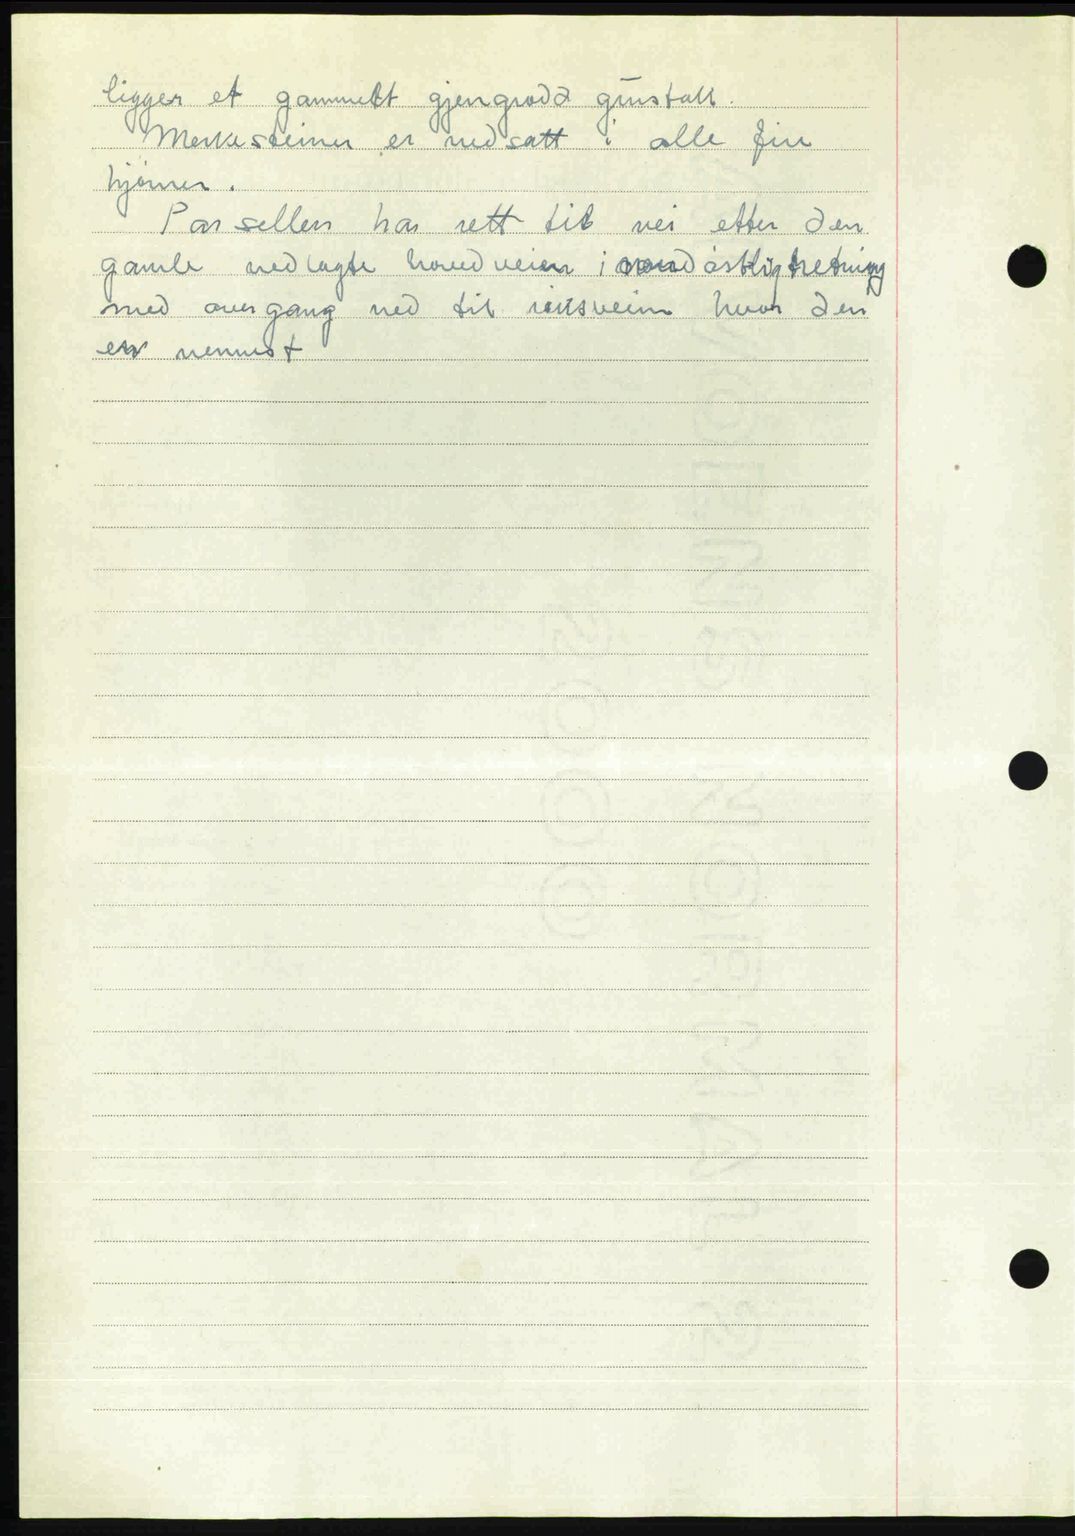 ligger et gammelt gjengrodd grustak.
Merkesteiner er nedsatt i alle fire
hjørner.
Parsellen har rett til vei etter den
gamle nedlagte hovedveien i nordøstlig retning
med overgang ned til riksveien hvor den
er nermest